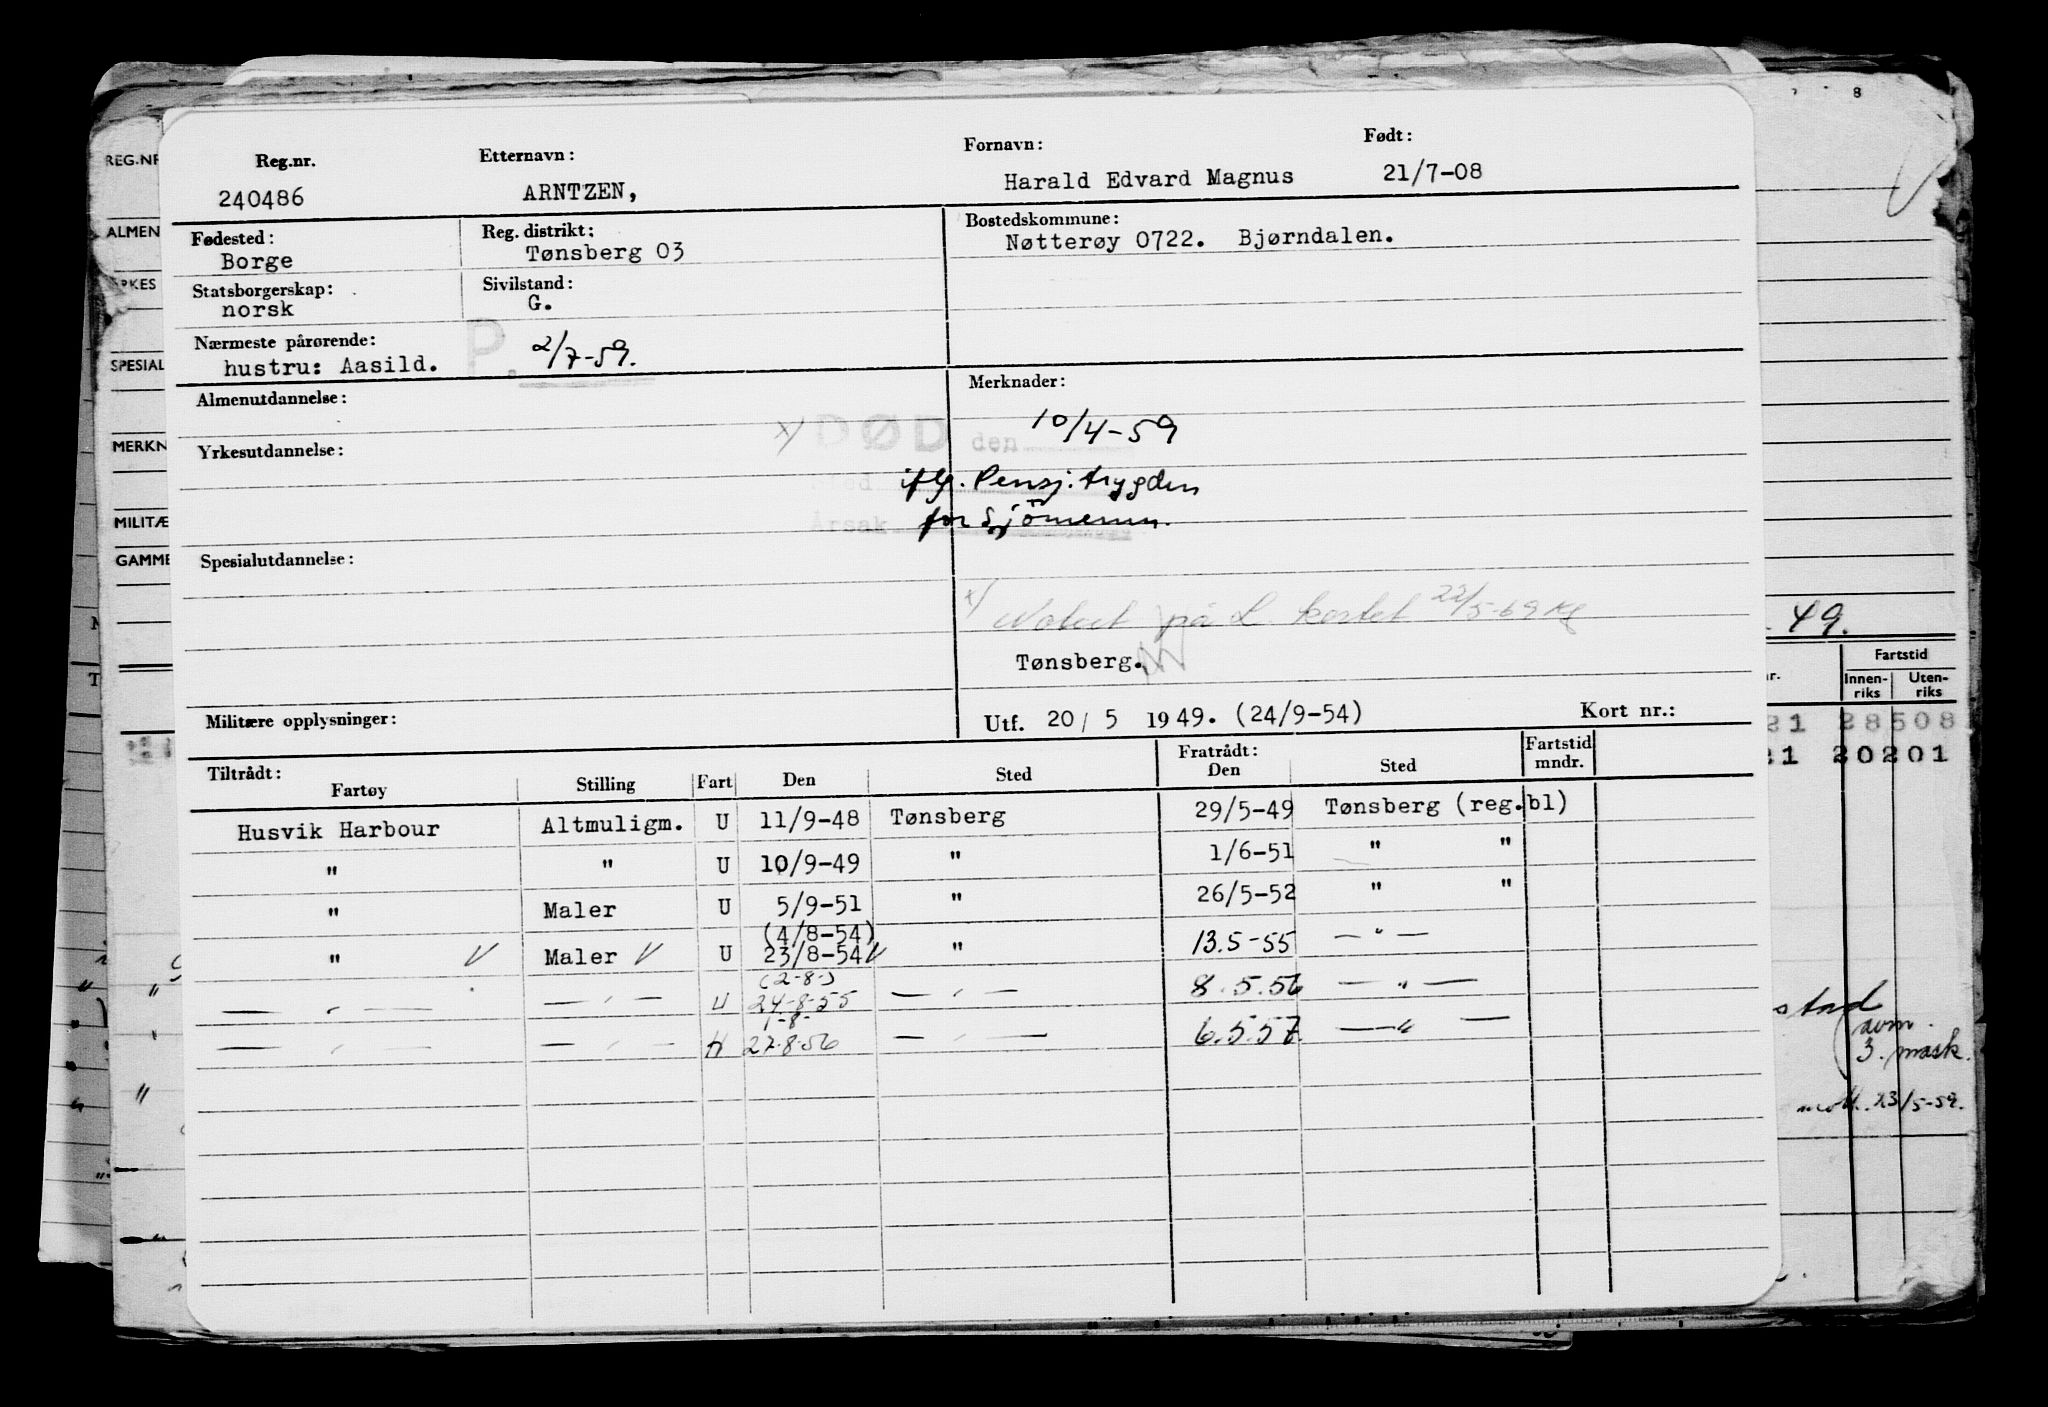 Reg.nr. Etternavn: Fornavn: Født:
240486 ARNTZEN, Harald Edvard Magnus 21/7-08
Fødested: Reg. distrikt: Bostedskommune:
Borge Tønsberg 03 Nøtterøy 0722. Bjørndalen.
Statsborgerskap: Sivilstand:
norsk G.
Nærmeste pårørende: P. 2/7-59.
hustru: Aasild.
Almenutdannelse: Merknader:
x/ DØD den 10/4-59
Yrkesutdannelse:
iflg. Pensj.trygden
Årsak for Sjømenn.
Spesialutdannelse:
x/ Notert på L. kortet 22/5-69 Kg
Tønsberg.
Militære opplysninger: Utf. 20/ 5 1949. (24/9-54) Kort nr.:
Tiltrådt: Fratrådt: Fartstid
Fartøy Stilling Fart Den Sted Den Sted mndr.
Husvik Harbour Altmuligm. U 11/9-48 Tønsberg 29/5-49 Tønsberg (reg.bl)
" " U 10/9-49 " 1/6-51 " "
" Maler U 5/9-51 " 26/5-52 " "
(4/8-54)
" V Maler V U 23/8-54 V " 13.5-55 — " —
(2-8-)
— " — — " — U 24-8-55 — " — 8.5.56 — " —
1-8-
— " — — " — H 27-8-56 — " — 6.5.57. — " —
REG.NR
ALMEN
SPESIAL
MERKN
MILITÆ
GAMME
8
49.
Fartstid
Innen- Uten-
riks riks
21 28508
21 20201
stad
avm.
3. mask.
23/5-59.